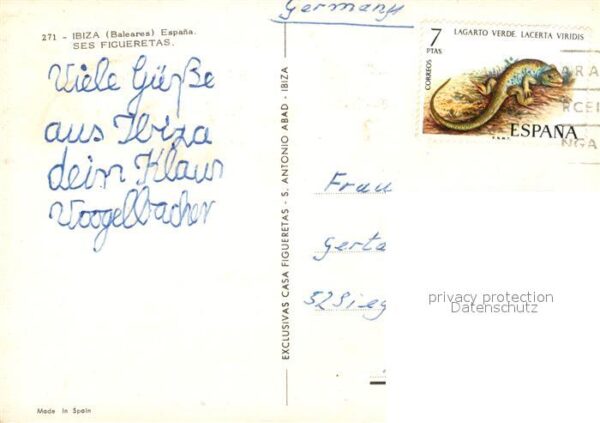 271 - IBIZA (Baleares) España.
SES FIGUERETAS.
Viele Güße
aus Ibiza
dein Klaus
Voogelbacher
Made in Spain
EXCLUSIVAS CASA FIGUERETAS - S. ANTONIO ABAD - IBIZA
Germany
7 PTAS
LAGARTO VERDE. LACERTA VIRIDIS
CORREOS
ESPAÑA
Frau
Gerta
52 Sieg
privacy protection
Datenschutz